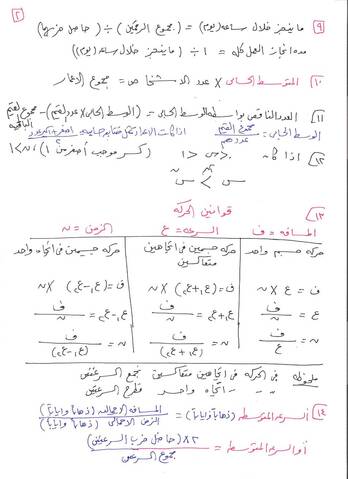 ٢
٩ ما ينجز خلال ساعة (يوم) = (مجموع الزمنين) ÷ (حاصل ضربهما)
مدة انجاز العمل كله = ١ ÷ (ما ينجز خلال ساعة (يوم))
١٠ المتوسط الحسابي × عدد الاشخاص = مجموع الاعمار
١١ العدد الناقص بواسطة الوسط الحسابي = (الوسط الحسابي × عدد القيم) - مجموع القيم الباقية
الوسط الحسابي = مجموع القيم / عددهم
١٢ اذا كان ٠ < س < ١ (كسر موجب أصغر من ١) ، ن > ١
س^ن < س
١٣ قوانين الحركة
المسافة = ف السرعة = ع الزمن = ن
حركة جسم واحد حركة جسمين في اتجاهين متعاكسين حركة جسمين في اتجاه واحد
ف = ع × ن ف = (ع١ + ع٢) × ن ف = (ع١ - ع٢) × ن
ع = ف / ن ع١ + ع٢ = ف / ن ع١ - ع٢ = ف / ن
ن = ف / ع ن = ف / (ع١ + ع٢) ن = ف / (ع١ - ع٢)
ملحوظة في الحركة في اتجاهين متعاكسين نجمع السرعتين
= = = اتجاه واحد نطرح السرعتين
١٤ السرعة المتوسطة (ذهاباً وإياباً) = المسافة الاجمالية (ذهاباً وإياباً) / الزمن الاجمالي (ذهاباً وإياباً)
أو السرعة المتوسطة = ٢ × (حاصل ضرب السرعتين) / مجموع السرعتين